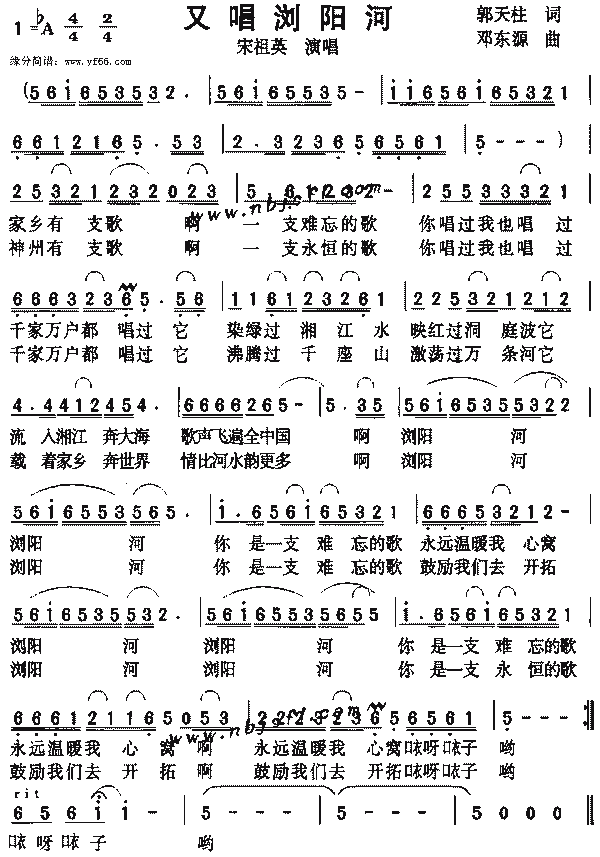 又唱浏阳河
1=♭A 4/4 2/4
宋祖英 演唱
郭天柱 词
邓东源 曲
缘分简谱：www.yf66.com
(5 6 1 6 5 5 3 5 3 2. 5 6 1 6 5 5 3 5 - 5 6 1 6 1 6 5 3 2 1
6 6 1 2 1 6 5. 5 3 2. 3 2 3 6 5 6 5 6 1 5 - - - )
2 5 3 2 1 2 3 2 0 2 3 2 2 5 5 3 2 2 3
家乡有 支歌 啊 一 支难忘的歌 你唱过我也唱 过
神州有 支歌 啊 一 支永恒的歌 你唱过我也唱 过
6 6 6 3 2 3 6 5. 5 6 1 1 6 1 2 3 2 6 1 2 2 5 3 2 1 2 1 2
千家万户都 唱过 它 染绿过 湘 江 水 映红过洞 庭波它
千家万户都 唱过 它 沸腾过 千 座 山 激荡过万 条河它
4. 4 4 1 2 4 5 4. 6 6 6 6 6 2 6 5 - 5. 3 5 5 6 1 6 5 3 5 5 3 2 2
流 入湘江 奔大海 歌声飞遍全中国 啊 浏阳 河
载 着家乡 奔世界 情比河水韵更多 啊 浏阳 河
5 6 1 6 5 5 3 5 6 5. 1. 6 5 6 1 6 5 3 2 1 6 6 6 5 3 2 1 2 -
浏阳 河 你 是一支 难 忘的歌 永远温暖我 心窝
浏阳 河 你 是一支 难 忘的歌 鼓励我们去 开拓
5 6 1 6 5 5 3 5 3 2. 5 6 1 6 5 5 3 5 6 5 5 1. 6 5 6 1 6 5 3 2 1
浏阳 河 浏阳 河 你 是一支 难 忘的歌
浏阳 河 浏阳 河 你 是一支 永 恒的歌
6 6 6 1 2 1 1 6 5 0 5 3 2 2 2 3 2 3 6 5 6 5 6 1 5 - - -
永远温暖我 心 窝 啊 永远温暖我 心窝咳呀咳子 哟
鼓励我们去 开 拓 啊 鼓励我们去 开拓咳呀咳子 哟
rit
6 5 6 1 1 - 5 - - - 5 - - - 5 0 0 0
咳 呀咳 子 哟